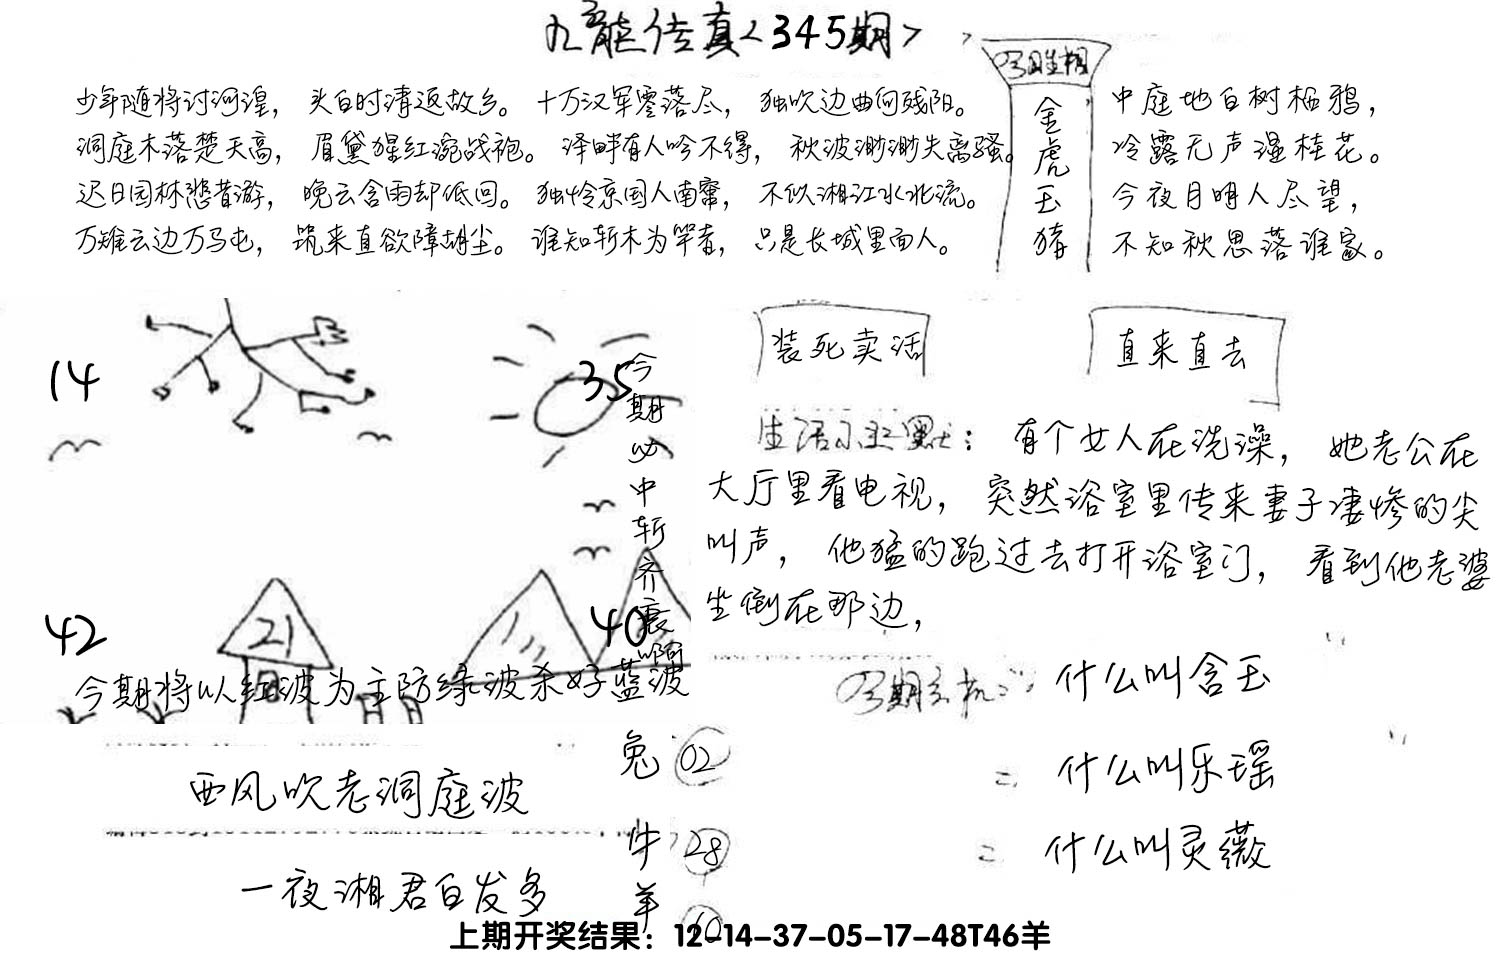 九龙传真<345期>
少年随将讨河湟，头白时清返故乡。十万汉军零落尽，独吹边曲向残阳。
洞庭木落楚天高，眉黛猩红涴战袍。泽畔有人吟不得，秋波渺渺失离骚。
迟日园林悲昔游，晚云含雨却低回。独怜京国人南窜，不似湘江水北流。
万雉云边万马屯，筑来直欲障胡尘。谁知斩木为竿者，只是长城里面人。
金虎玉猪
中庭地白树栖鸦，
冷露无声湿桂花。
今夜月明人尽望，
不知秋思落谁家。
14
35
今期必中斩齐衰啊
42
21
40
今期将以红波为主防绿波杀好蓝波
装死卖活
直来直去
生活小幽默：有个女人在洗澡，她老公在
大厅里看电视，突然浴室里传来妻子凄惨的尖
叫声，他猛的跑过去打开浴室门，看到他老婆
坐倒在那边，
今期玄机：什么叫含玉
= 什么叫乐瑶
= 什么叫灵薇
西风吹老洞庭波
一夜湘君白发多
兔 02
牛 28
羊
上期开奖结果：12-14-37-05-17-48T46羊